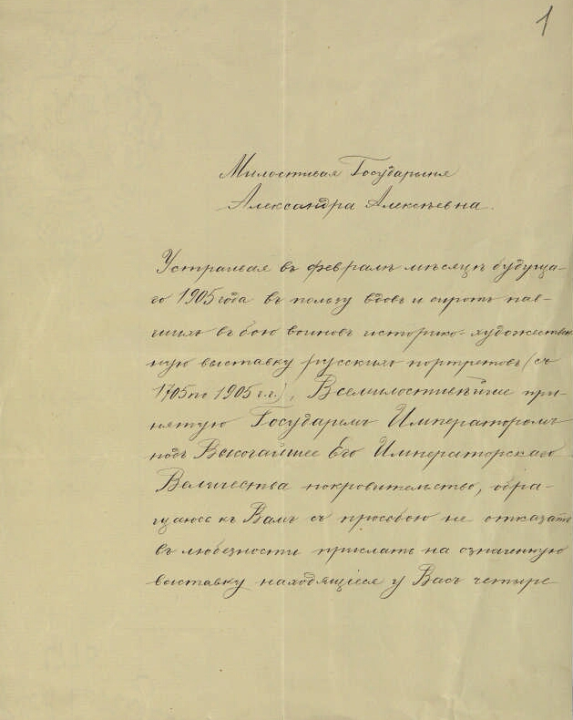 1
Милостивая Государыня
Александра Алексѣевна.
Устраивая въ февралѣ мѣсяцѣ будуща-
го 1905 года въ пользу вдовъ и сиротъ пав-
шихъ въ бою воиновъ историко-художествен-
ную выставку русскихъ портретовъ (съ
1705 по 1905 г.г.), Всемилостивѣйше при-
нятую Государемъ Императоромъ
подъ Высочайшее Его Императорскаго
Величества покровительство, обра-
щаюсь къ Вамъ съ просьбою не отказать
въ любезности прислать на означенную
выставку находящіеся у Васъ четыре